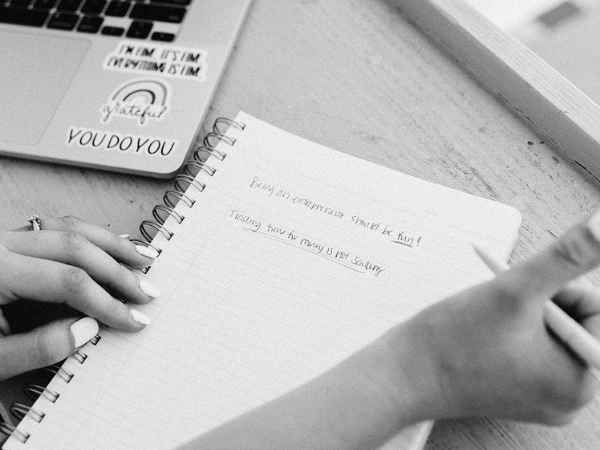 I'M FINE. IT'S FINE.
EVERYTHING IS FINE.
grateful
YOU DO YOU
Being an entrepreneur should be fun!
Trading time for money is not scaling